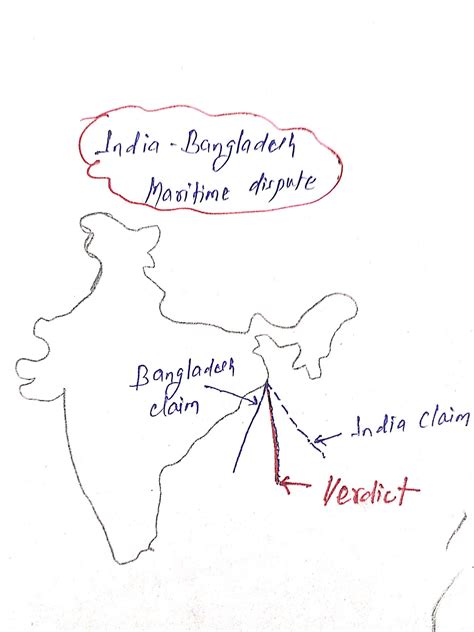 India - Bangladesh
Maritime dispute
Bangladesh
claim
India Claim
Verdict